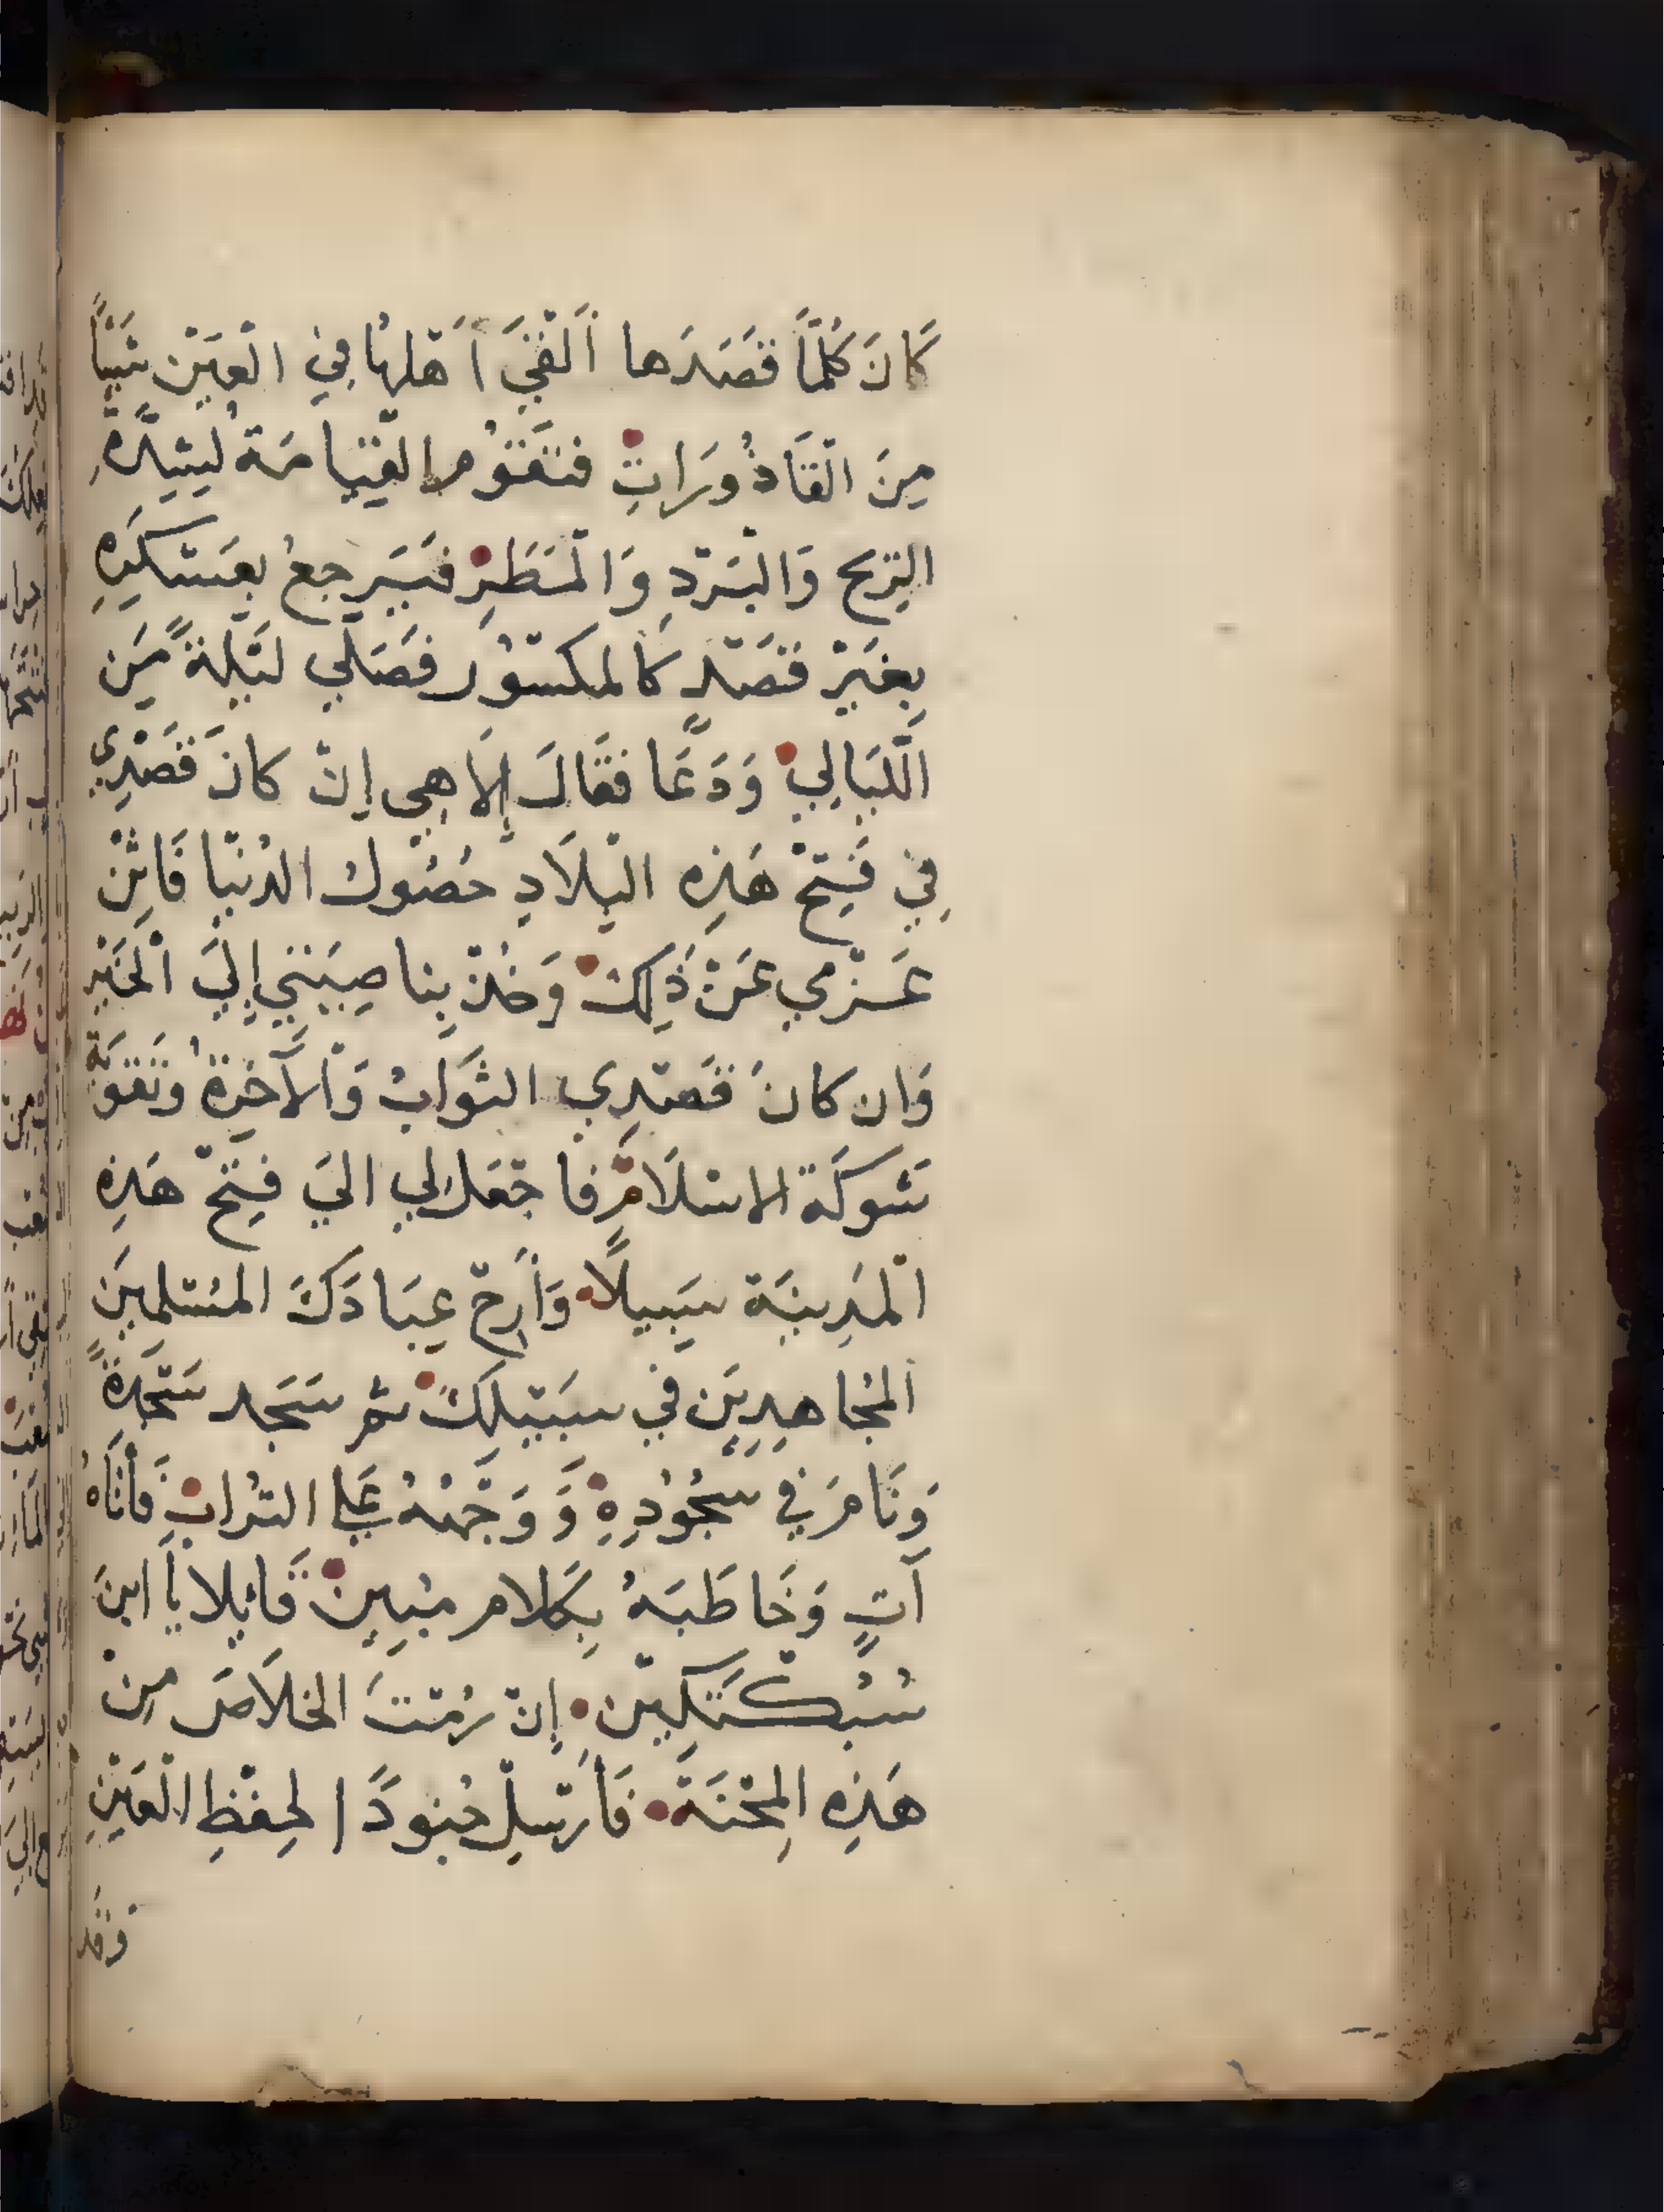 كَانَ كُلَّمَا قَصَدَها أَلْقَيَ أَهْلهَا فِي الْعَيْن شَيْأً
مِنَ الْقَاذُورَاتِ فتَقُوْم القِيَامَة لِشِدَّةِ
الرِيح وَالْبَرْدِ وَالْمَطَرِ فَيَرجعُ بعَسْكَرِهِ
بِغَيْر قَصْد كالمكسُور فصَلّي لَيْلةً مِن
اللَّيَالِي وَدَعَا فقَالَ إِلَاهِي إِنْ كانَ قَصْدِي
فِي فَتِحْ هَذِه الْبِلَادِ حُصُول الدُنْيَا فَاثْنِ
عَزْمِي عَنْ ذَلِكَ وَخُذْ بِناصِيَتي إِلَيَ الْخَيْر
وَان كانَ قَصْدِي الثَوَابْ وَالْآخِرَةُ وَتَقويَة
شَوكَة الاسْلَامِ فاجْعَل لي اليَ فِتَحْ هَذِه
الْمَدِينَة سَبيلًا وَأَرِحْ عِبَادَكَ المُسْلمِيَن
المُجَاهِدِيَن في سَبيْلِكَ ثم سَجَد سَجْدَةً
وَنَامَ في سُجُوْدِهِ وَوَجْهُهُ عَلي التُرابِ فَأتَاهُ
آتٍ وَخَاطَبَهُ بِكَلام مُبِين قَائِلا يَا ابنَ
سُبُكْتَكِيْن إِنْ رُمْتَ الخلَاصَ مِنْ
هَذِه المِحْنَةْ فَأرْسِلْ جُنودًا لِحفْظِ الْعَيْنِ
وَقد